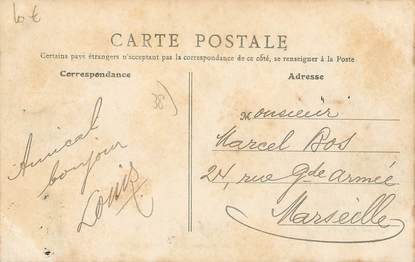 10 €
CARTE POSTALE
Certains pays étrangers n'acceptant pas la correspondance de ce côté, se renseigner à la Poste
Correspondance
Adresse
38)
Amical
bonjour
Louis
Monsieur
Marcel Bos
24, rue Gde armée
Marseille